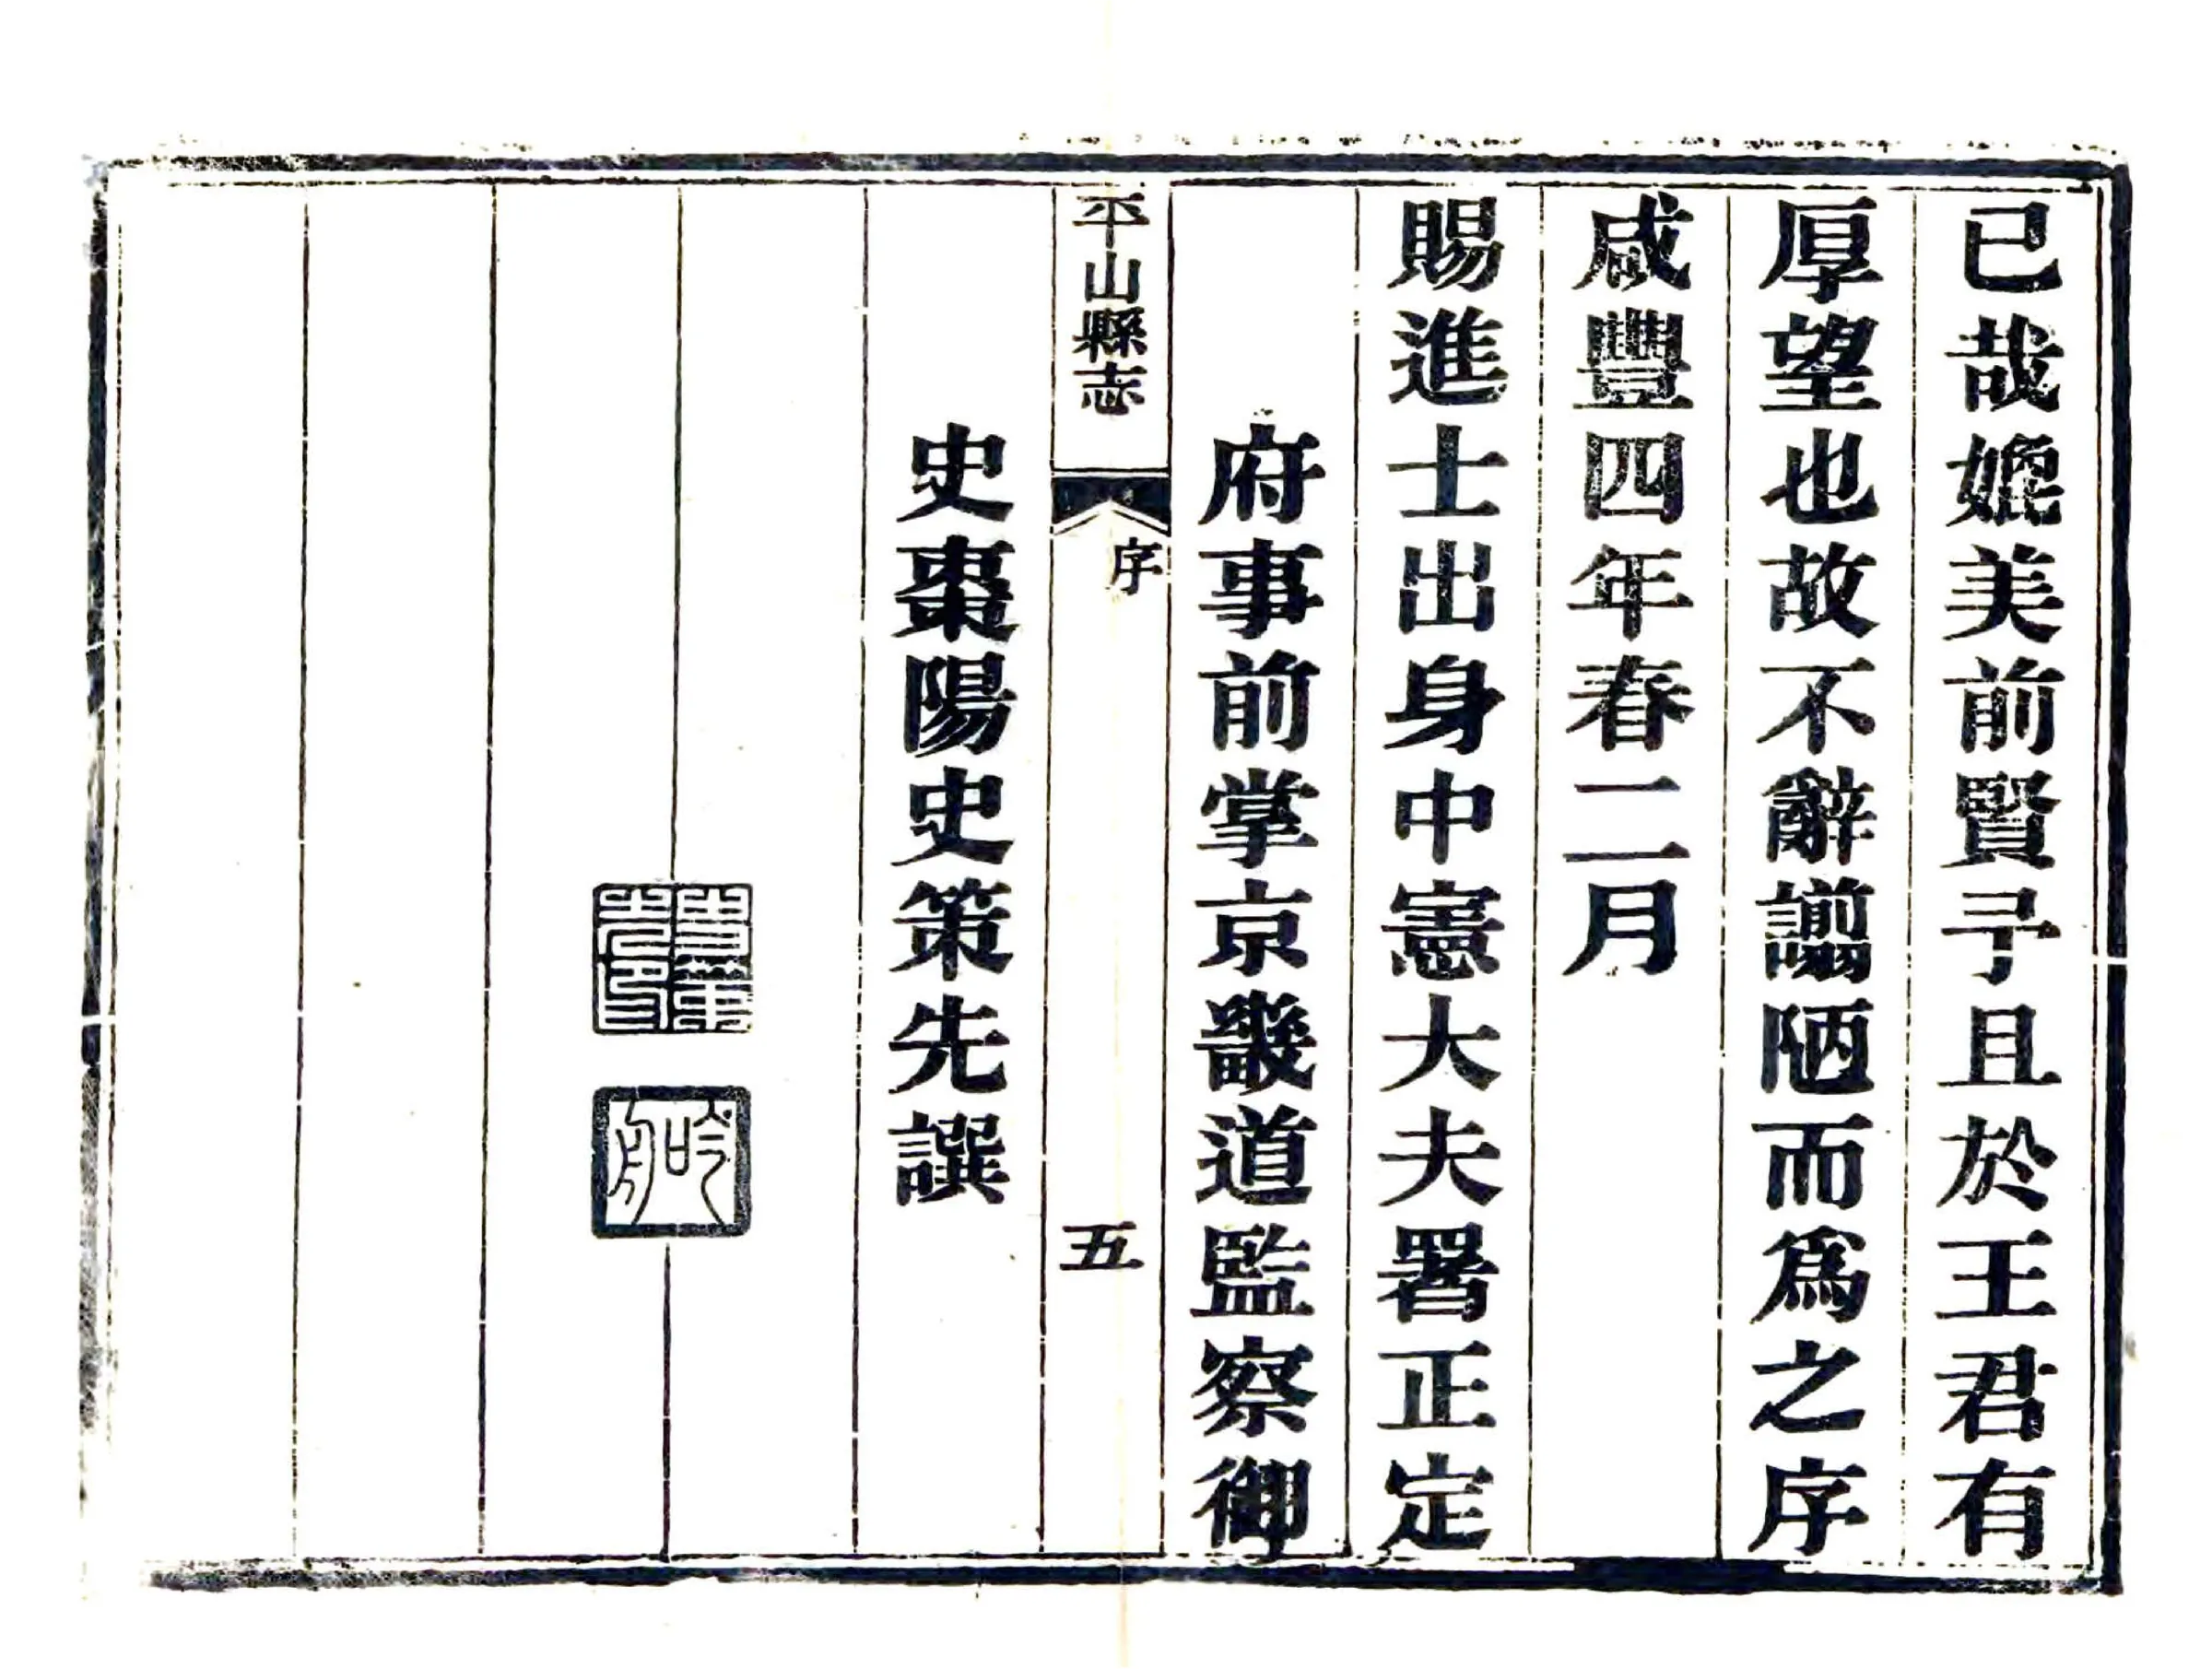 已哉媲美前賢予且於王君有
厚望也故不辭譾陋而爲之序
咸豐四年春二月
賜進士出身中憲大夫署正定
府事前掌京畿道監察御
平山縣志
序
五
史棗陽史策先譔
史策先印
吟舟